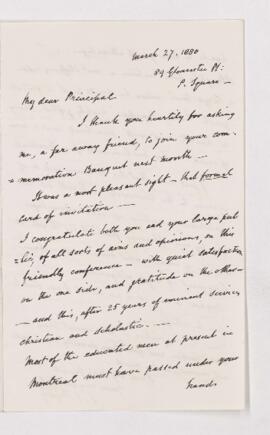 March 27, 1880
89 Gloucester Pl:
P. Square -
My dear Principal
I thank you heartily for asking
me, a far away friend, to join your com-
=memoration Banquet next month -
It was a most pleasant sight - that formal
card of invitation -
I congratulate both you and your large pub
=lic, of all sorts of aims and opinions, on this
friendly conference - with quiet satisfaction
on the one side, and gratitude on the other -
- and this, after 25 years of eminent services
christian and scholastic. -
Most of the educated men at present in
Montreal must have passed under your
hands